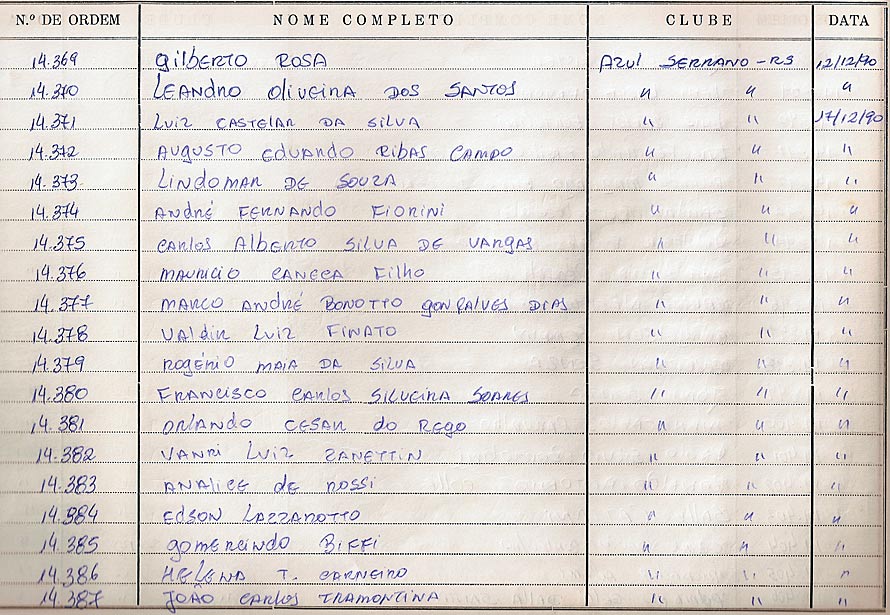 N.º DE ORDEM NOME COMPLETO CLUBE DATA
14.369 Gilberto Rosa Azul Serrano - RS 12/12/90
14.370 Leandro Oliveira dos Santos " " "
14.371 Luiz Castelar da Silva " " 17/12/90
14.372 Augusto Eduardo Ribas Campo " " "
14.373 Lindomar de Souza " " "
14.374 André Fernando Fiorini " " "
14.375 Carlos Alberto Silva de Vargas " " "
14.376 Mauricio Caneca Filho " " "
14.377 Marco André Bonotto Gonçalves Dias " " "
14.378 Valdir Luiz Finato " " "
14.379 Rogério Maia da Silva " " "
14.380 Francisco Carlos Silveira Soares " " "
14.381 Orlando Cesar do Rego " " "
14.382 Vanri Luiz Zanettin " " "
14.383 Analice de Rossi " " "
14.384 Edson Lazzarotto " " "
14.385 Gomercindo Biffi " " "
14.386 Helena T. Carneiro " " "
14.387 João Carlos Tramontina " " "